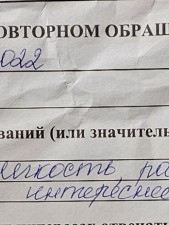 ПОВТОРНОМ ОБРАЩ
2022
ваний (или значитель
легкость, ра
интереснее